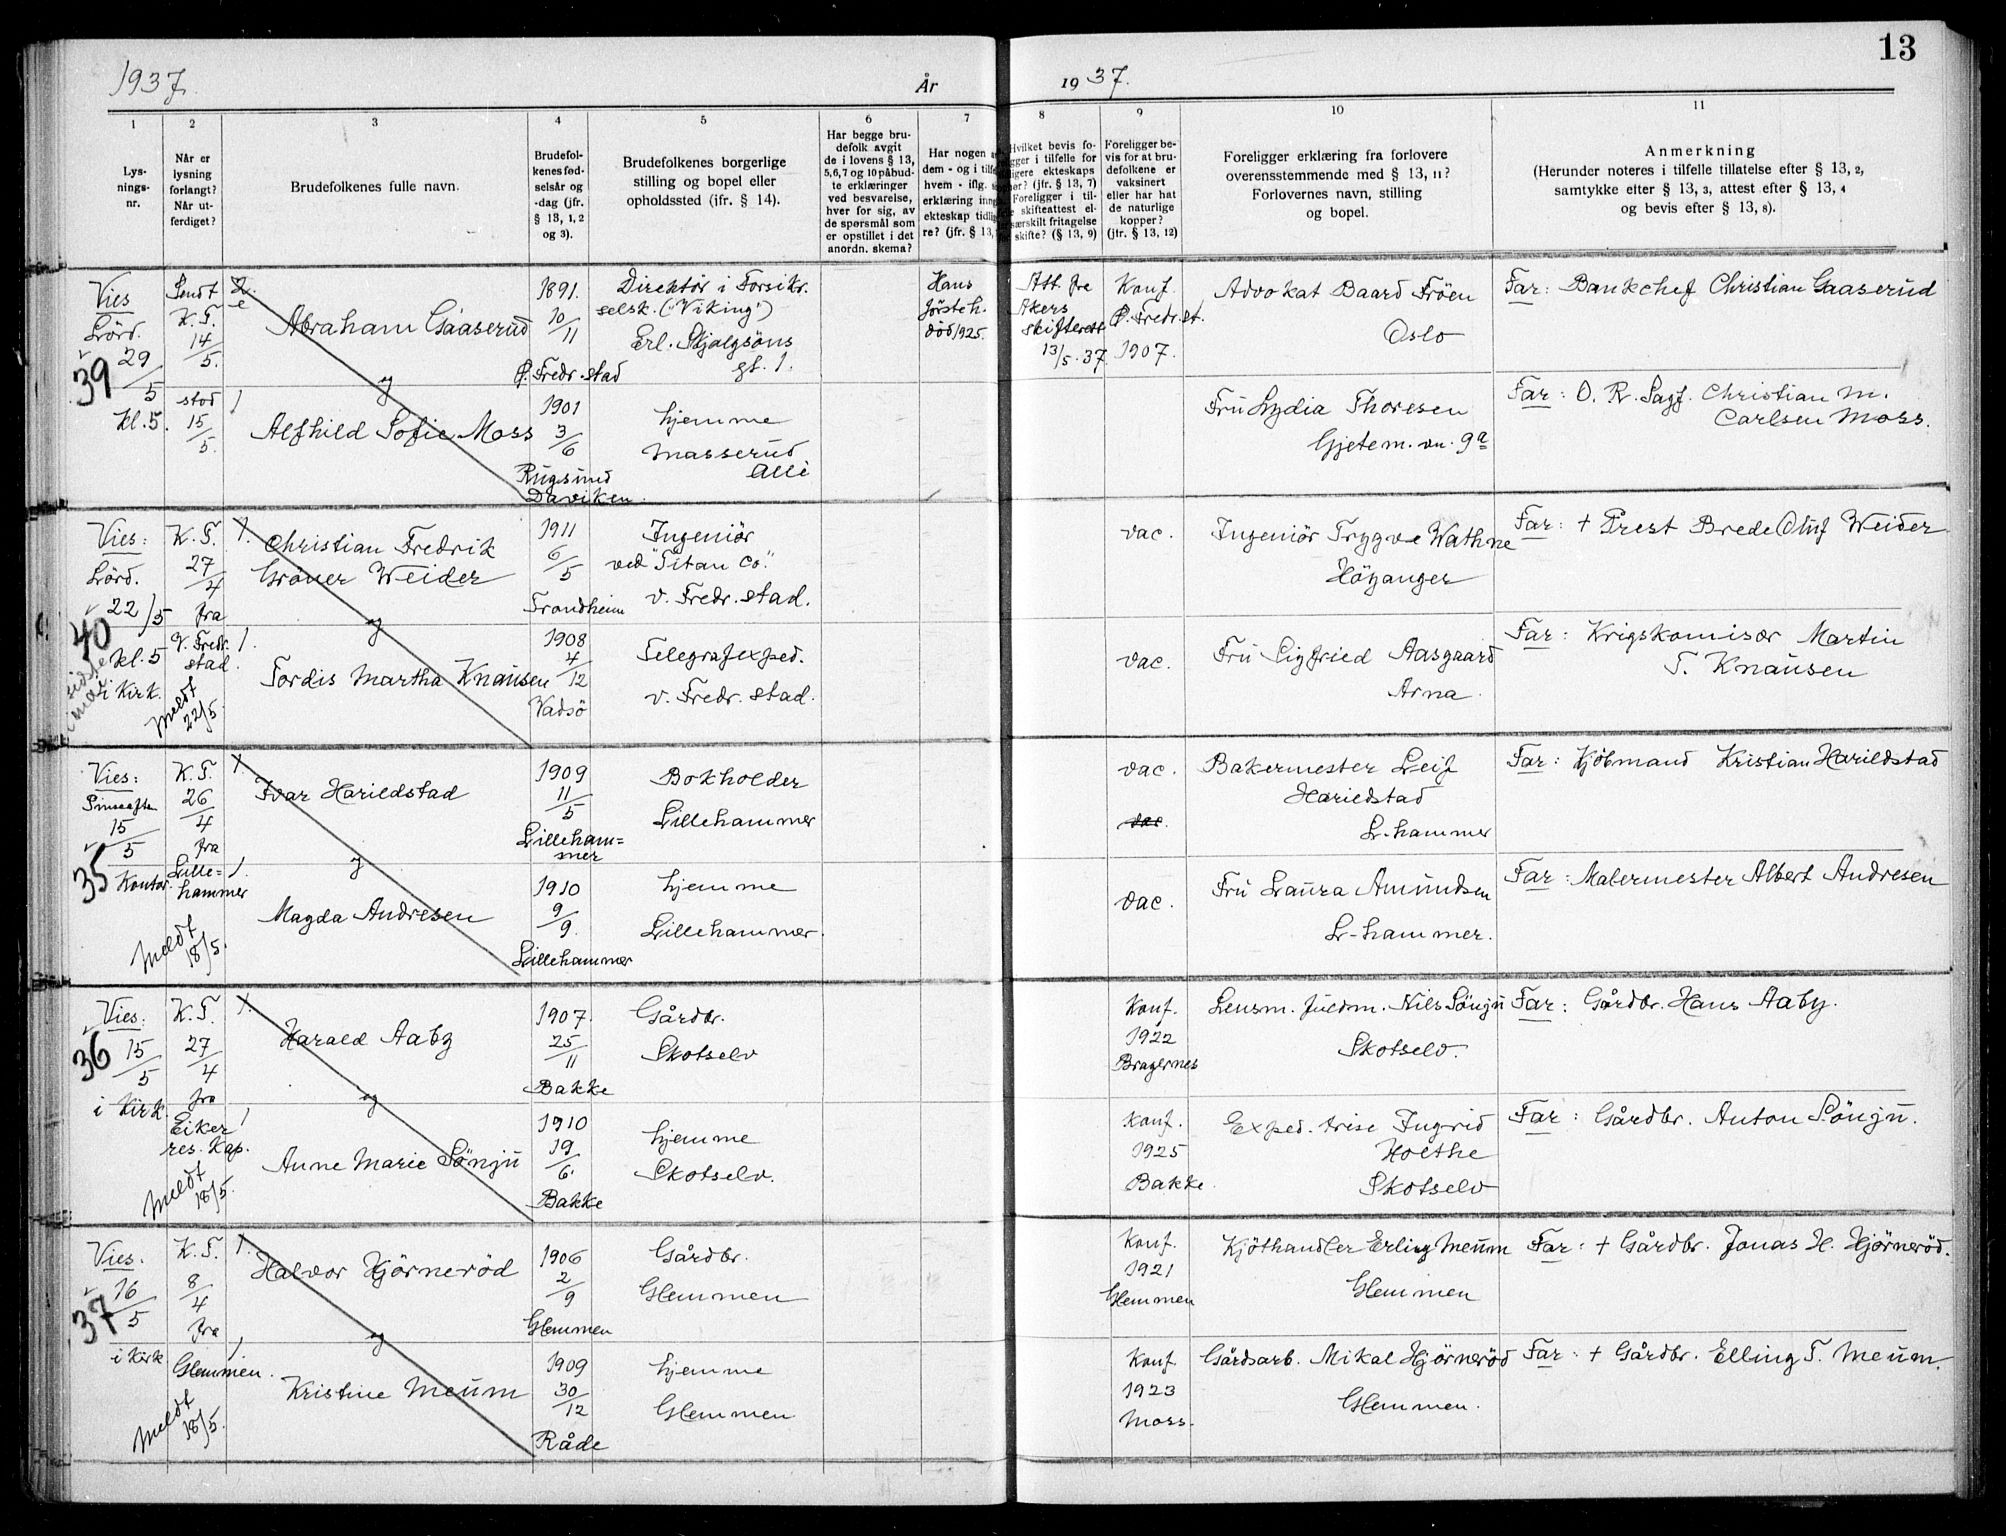 13
1937.
År
19 37.
1
Lys-
nings-
nr.
2
Når er
lysning
forlangt?
Når ut-
ferdiget?
3
Brudefolkenes fulle navn.
4
Brudefol-
kenes fød-
selsår og
-dag (jfr.
§ 13, 1, 2
og 3).
5
Brudefolkenes borgerlige
stilling og bopel eller
opholdssted (jfr. § 14).
6
Har begge bru-
defolk avgit
de i lovens § 13,
5,6,7 og 10 påbud-
te erklæringer
ved besvarelse,
hver for sig, av
de spørsmål som
er opstillet i det
anordn. skema?
7
Har nogen
dem - og i tilf
hvem - iflg.
erklæring inng
ekteskap tidli
re? (jfr. § 13,
8
Hvilket bevis fo-
gger i tilfelle for
ligere ekteskaps
er? (jfr. § 13, 7)
Foreligger i til-
skifteattest el-
særskilt fritagelse
skifte? (§ 13, 9)
9
Foreligger be-
vis for at bru-
defolkene er
vaksinert
eller har hat
de naturlige
kopper?
(jfr. § 13, 12)
10
Foreligger erklæring fra forlovere
overensstemmende med § 13, 11?
Forlovernes navn, stilling
og bopel.
11
Anmerkning
(Herunder noteres i tilfelle tillatelse efter § 13, 2,
samtykke efter § 13, 3, attest efter § 13, 4
og bevis efter § 13, 8).
Vies
Lörd.
29/5
39
kl. 5.
Sendt
K. T.
14/5.
stod
15/5.
Abraham Gaaserud
og
Alfhild Sofie Moss
1891.
10/11
Ø. Fredr.stad
1901
3/6
Rugsund
Daviken.
Direktör i Forsikr.
selsk. ("Viking")
Erl. Skjalgsöns
gt. 1.
hjemme
Masserud
Allé
Hans
förste h.
död 1925.
Att. fra
Akers
skifterett
13/5.37
Konf.
Ø. Fredr.st.
1907.
Advokat Baard Fröen
Oslo
Fru Lydia Thoresen
Gjetem. vn. 9a
Far: Bankchef Christian Gaaserud
Far: O. R. Sagf. Christian M.
Carlsen Moss.
Vies:
Lörd.
22/5
40
kl. 5
i Kirk.
K. T.
27/4
fra
V. Fredr.
stad.
Meldt
22/5.
Christian Fredrik
Gröner Weider
og
Tordis Martha Knausen
1911
6/5
Trondheim
1908
4/12
Vadsö
Ingeniör
ved "Titan Co."
v. Fredr.stad.
Telegrafexped.
v. Fredr.stad.
vac.
vac.
Ingeniör Trygve Wathne
Höyanger
Fru Sigfried Aasgaard
Arna.
Far: + Prest Brede Oluf Weider
Far: Krigskomisær Martin
T. Knausen
Vies:
Pinseaften
15/5
35
Kontor.
K. T.
26/4
fra
Lille-
hammer
Meldt
18/5.
Ivar Harildstad
og
Magda Andresen
1909
11/5
Lilleham=
mer
1910
9/9.
Lillehammer
Bokholder
Lillehammer
hjemme
Lillehammer.
vac.
vac.
vac.
Bakermester Leif
Harildstad
L-hammer
Fru Laura Amundsen
L-hammer.
Far: Kjöbmand Kristian Harildstad
Far: Malermester Albert Andresen
Vies:
15/5
36
i Kirk.
K. T.
27/4
fra
Eiker
res. Kap.
Meldt
18/5.
Harald Aaby
og
Anne Marie Sönju
1907.
25/11
Bakke
1910
19/6.
Bakke
Gårdbr.
Skotselv
hjemme
Skotselv.
Konf.
1922
Bragernes
Konf.
1925
Bakke.
Lensm. fuldm. Nils Sönju
Skotselv.
Exped. trise Ingrid
Holthe
Skotselv
Far: Gårdbr. Hans Aaby.
Far: Gårdbr. Anton Sönju.
Vies:
16/5
37
i Kirk
K. T.
8/4
fra
Glemmen.
Meldt
18/5.
Halvor Hjörneröd
og
Kristine Meum
1906
2/9
Glemmen
1909
30/12
Råde
Gårdbr.
Glemmen
hjemme
Glemmen
Konf.
1921
Glemmen
Konf.
1923
Moss.
Kjöthandler Erling Meum
Glemmen
Gårdsarb. Mikal Hjörneröd
Glemmen.
Far: + Gårdbr. Jonas H. Hjörneröd.
Far: + Gårdbr. Elling T. Meum.